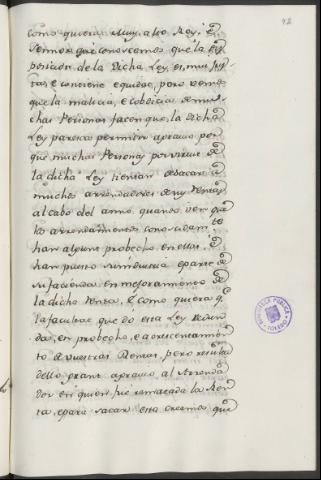 42
como quiera Muy alto Rey, é
vemos, que conoscemos que la dis
posicion de la Dicha Ley, es, mui jus
ta, é contiene equidad, pero vemos
que la malicia, é cobdicia de mu-
chas Personas facen que la Dicha
Ley paresca permitir agravio por
que muchas Personas por virtud de
la dicha Ley tientan de sacar á
muchos arrendadores de su Rentas
al cabo del anno, quando ven que
los arrendamientos conosidamte
han algunt probecho en ellas, é
han puesto su industria é parte de
su facienda en mejoramiento de
la dicha renta, é como quiera q.e
la facultad que dá esta Ley redun
da, en probecho, é acrescentamien
to de vuestras Rentas, pero resulta
dello grant agravio al Arrenda
dor en quien fue rematada la Ren
ta, é para sacar esta creemos que
BIBLIOTECA PUBLICA
TOLEDO